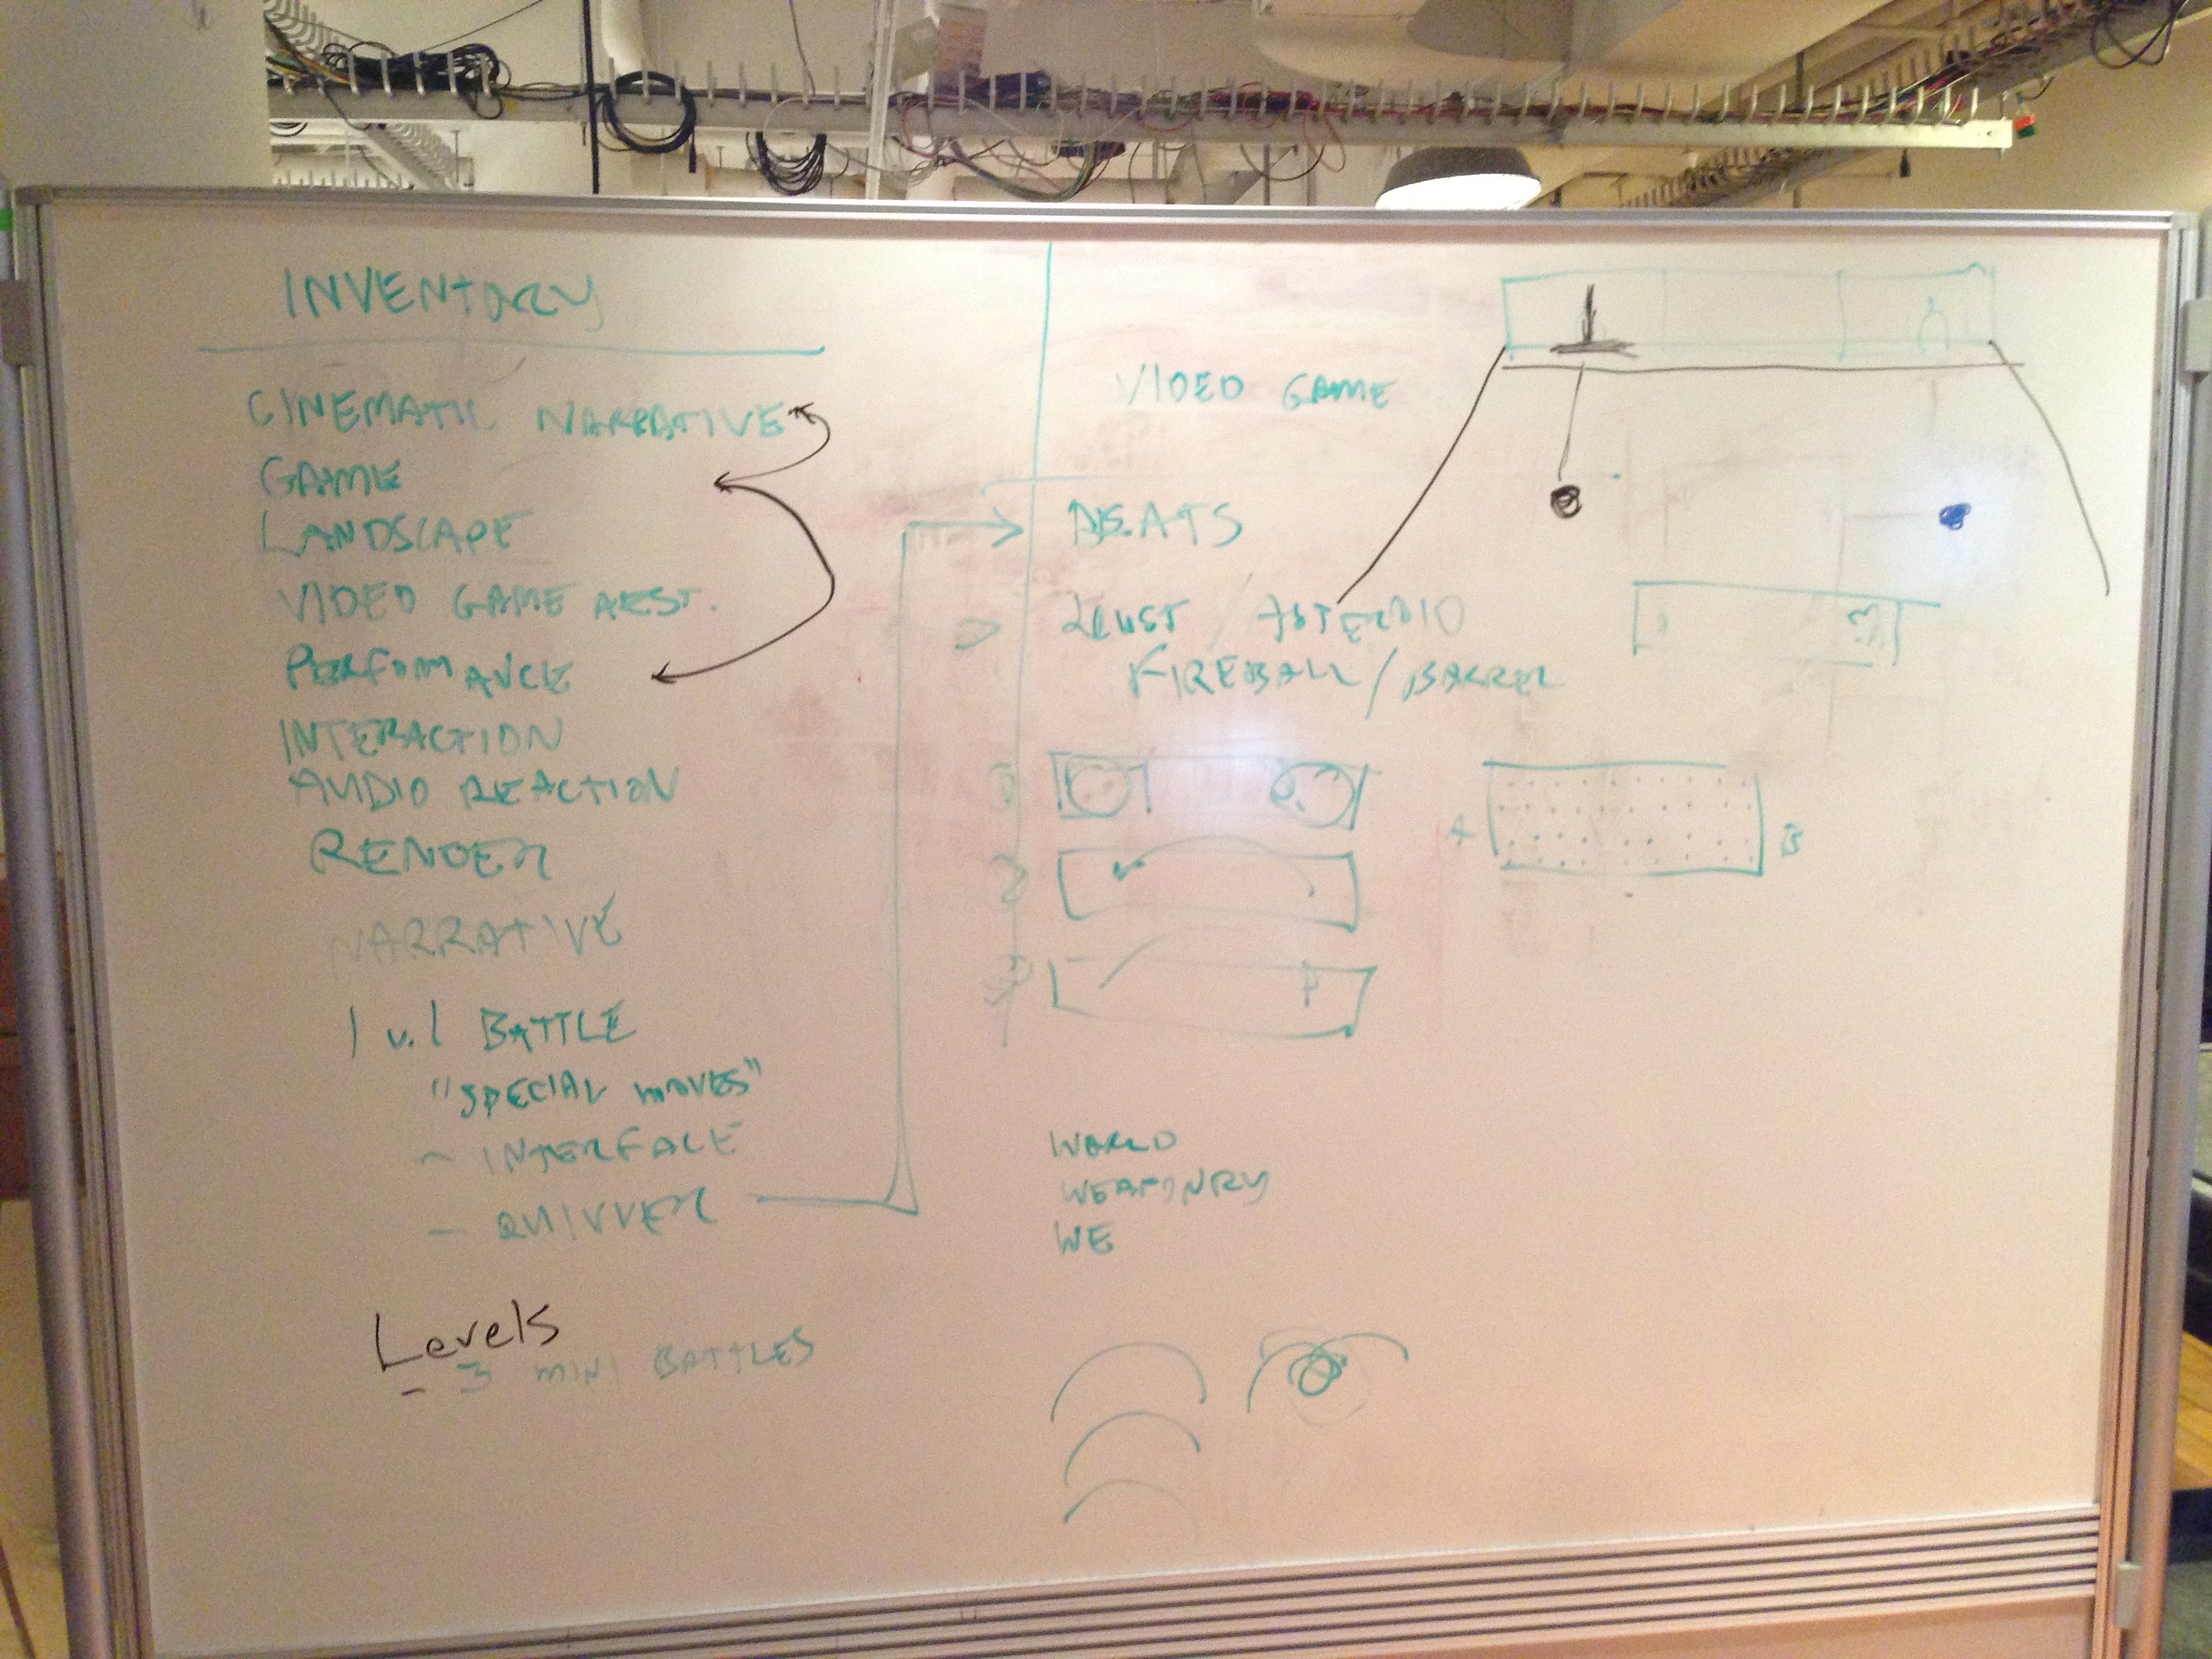 INVENTORY
CINEMATIC NARRATIVE
GAME
LANDSCAPE
VIDEO GAME AEST.
PERFORMANCE
INTERACTION
AUDIO REACTION
RENDER
NARRATIVE
1 v. 1 BATTLE
"SPECIAL MOVES"
- INTERFACE
- QUIVVER
Levels
- 3 MINI BATTLES
VIDEO GAME
BEATS
/ ASTEROID
FIREBALL / BARREL
1
2
3
A B
WORLD
WEAPONRY
WE